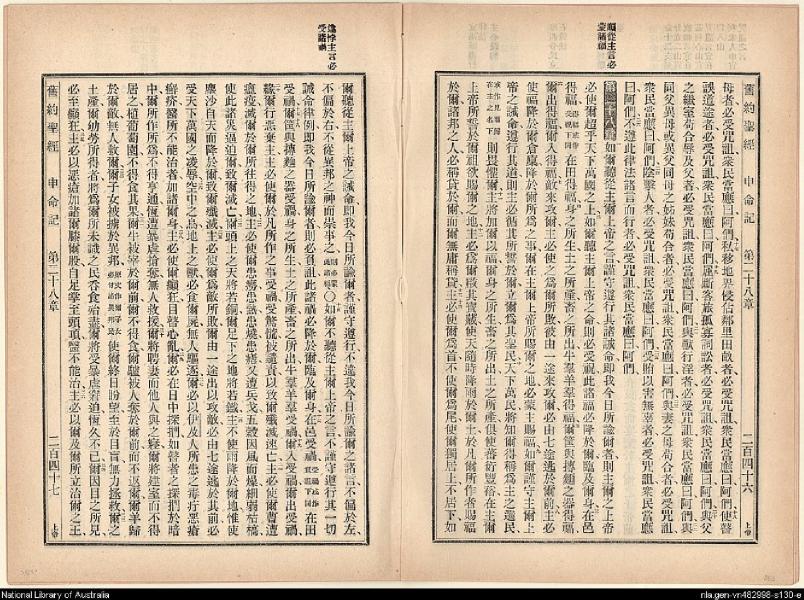 舊約聖經 申命記 第二十八章 二百四十六 上帝
母者必受咒詛衆民當應曰阿們私移地界侵佔鄰里田畝者必受咒詛衆民當應曰阿們使瞽
誤道途者必受咒詛衆民當應曰阿們屈斷客旅孤寡詞訟者必受咒詛衆民當應曰阿們與父
之繼室苟合辱及父者必受咒詛衆民當應曰阿們與獸行淫者必受咒詛衆民當應曰阿們與
同父異母或異父同母之姊妹苟合者必受咒詛衆民當應曰阿們與妻之母苟合者必受咒詛
衆民當應曰阿們陰擊人者必受咒詛衆民當應曰阿們受賄以害無辜者必受咒詛衆民當應
曰阿們不遵此律法諸言而行者必受咒詛衆民當應曰阿們
順從主言必
蒙諸福
第二十八章 如爾聽從主爾上帝之言謹守遵行其諸誡命卽我今日所諭爾者則主爾之上帝
必使爾超乎天下萬國之上如爾聽主爾上帝之命則必受此諸福必降於爾臨及爾身在邑
得福 在田得福身之所生土之所產畜之所出牛羣羊羣得福爾筐與摶麵之器得福
爾出得福爾入得福敵來攻爾主必使之爲爾所敗彼由一途來攻爾必由七途逃於爾前主必
使福降於爾倉廩降於爾所爲之事爾在主爾上帝所賜爾之地必蒙主賜福如爾謹守主爾上
帝之誡命遵行其道則主必循其所誓於爾以爾爲其聖民天下萬民將知爾得稱爲主之選民
則畏懼爾主將加爾以福爾身之所生畜之所出土之所產俱使蕃衍豐裕在主爾
上帝所誓於爾祖欲賜爾之地主必爲爾啟其寶藏使天隨時降雨於爾土於凡爾所作者賜
於爾諸邦之人必稱貸於爾而爾無庸稱貸主必使爾爲首不使爾爲尾使爾獨居上不居下如
爾聽從主爾上帝之誡命卽我今日所諭爾者謹守遵行不違我今日所諭爾之諸言不偏於左
不偏於右不從異邦之神而崇事之 〇如爾不聽從主爾上帝之言不謹守遵行其一切
違悖主言必
受諸禍
誡命律例卽我今日所諭爾者則必負詛此諸禍必降於爾臨及爾身在邑受禍 在田
受禍爾筐與摶麵之器受禍身之所生土之所產畜之所出牛羣羊羣受禍爾入受禍爾出受禍
緣爾行惡棄主主必使爾於凡所作之事受禍受驚慌被譴責以致爾殲滅速亡主必使爾
瘟疫滅爾於爾所往得之地主必使爾患癆患熱患瘧患疹又遭兵戈五穀因風而燥細弱枯槁
使此諸災逼迫爾致爾滅亡爾頭上之天將若銅爾足下之地將若鐵主不使雨降於爾地惟使
塵沙自天而降於爾致爾殲滅主必使爾爲敵所敗爾由一途出以攻敵必由七途逃於其前必
受天下萬國之凌辱空中之鳥地上之獸必食爾屍無人驅逐爾必以伊及人所患之毒疔惡瘡
癬疥醫所不能治者加諸爾身主必使爾癲狂目瞽心亂爾必在日中探捫如瞽者之探捫於暗
中爾所作所爲不得亨通恆遭暴虐搶奪無人救援爾將聘妻而他人與之寢爾將建室而不得
居之植葡萄園不得食其果爾牛被宰於爾前爾不得食爾驢被人奪於爾前而不返爾羊歸
於爾敵無人救爾爾子女被擄於異邦 使爾終日盼望至於目盲無力拯救爾之
土產爾勞所得者將爲爾所未識之民吞食殆盡爾將受暴虐窘迫恆久不已爾因目之所見
必至癲狂主必以惡瘡加諸爾膝爾股自足掌至頭頂盡不能治主必以爾及爾所立治爾之王
舊約聖經 申命記 第二十八章 二百四十七 上帝
National Library of Australia
nla.gen-vn482998-s130-e